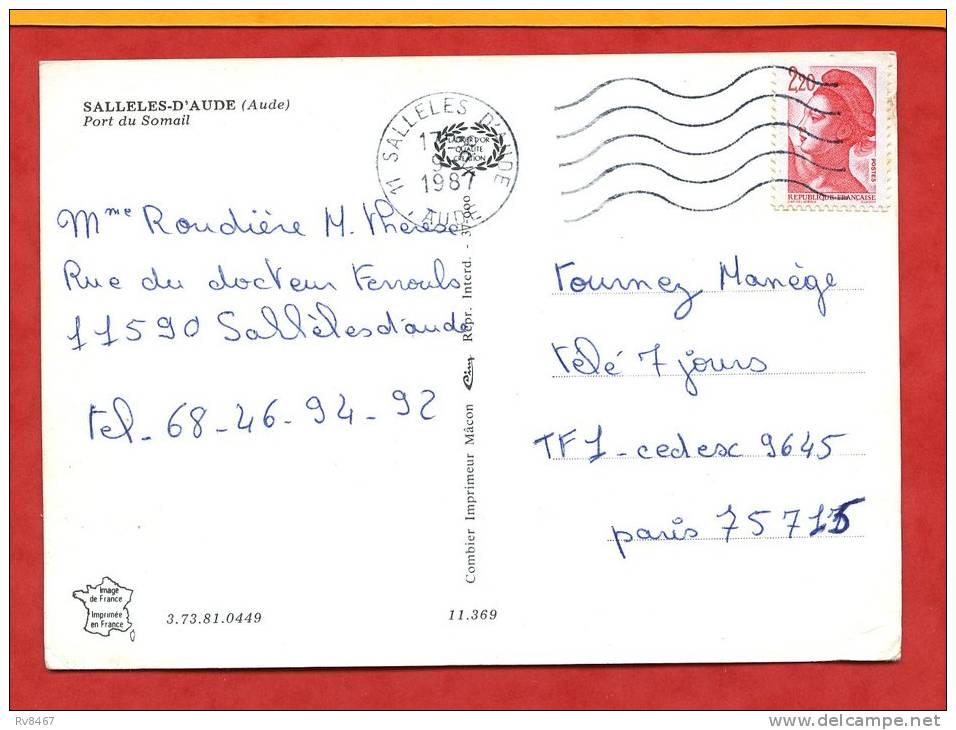 SALLELES-D'AUDE (Aude)
Port du Somail
11 SALLELES D'AUDE
17
9
1987
- AUDE
LAURIER D'OR
QUALITE
CREATION
2,20
POSTES
REPUBLIQUE FRANÇAISE
Mme Roudière M. Thérèse
Rue du docteur Ferrouls
11590 Sallèles d'aude
tel - 68-46-94-92
Combier Imprimeur Mâcon Cim Repr. Interd. - 37-000
Tournez Manège
télé 7 jours
TF1 - cedex 9645
paris 75715
Image
de France
Imprimée
en France
3.73.81.0449
11.369
Rv8467
delcampe.net